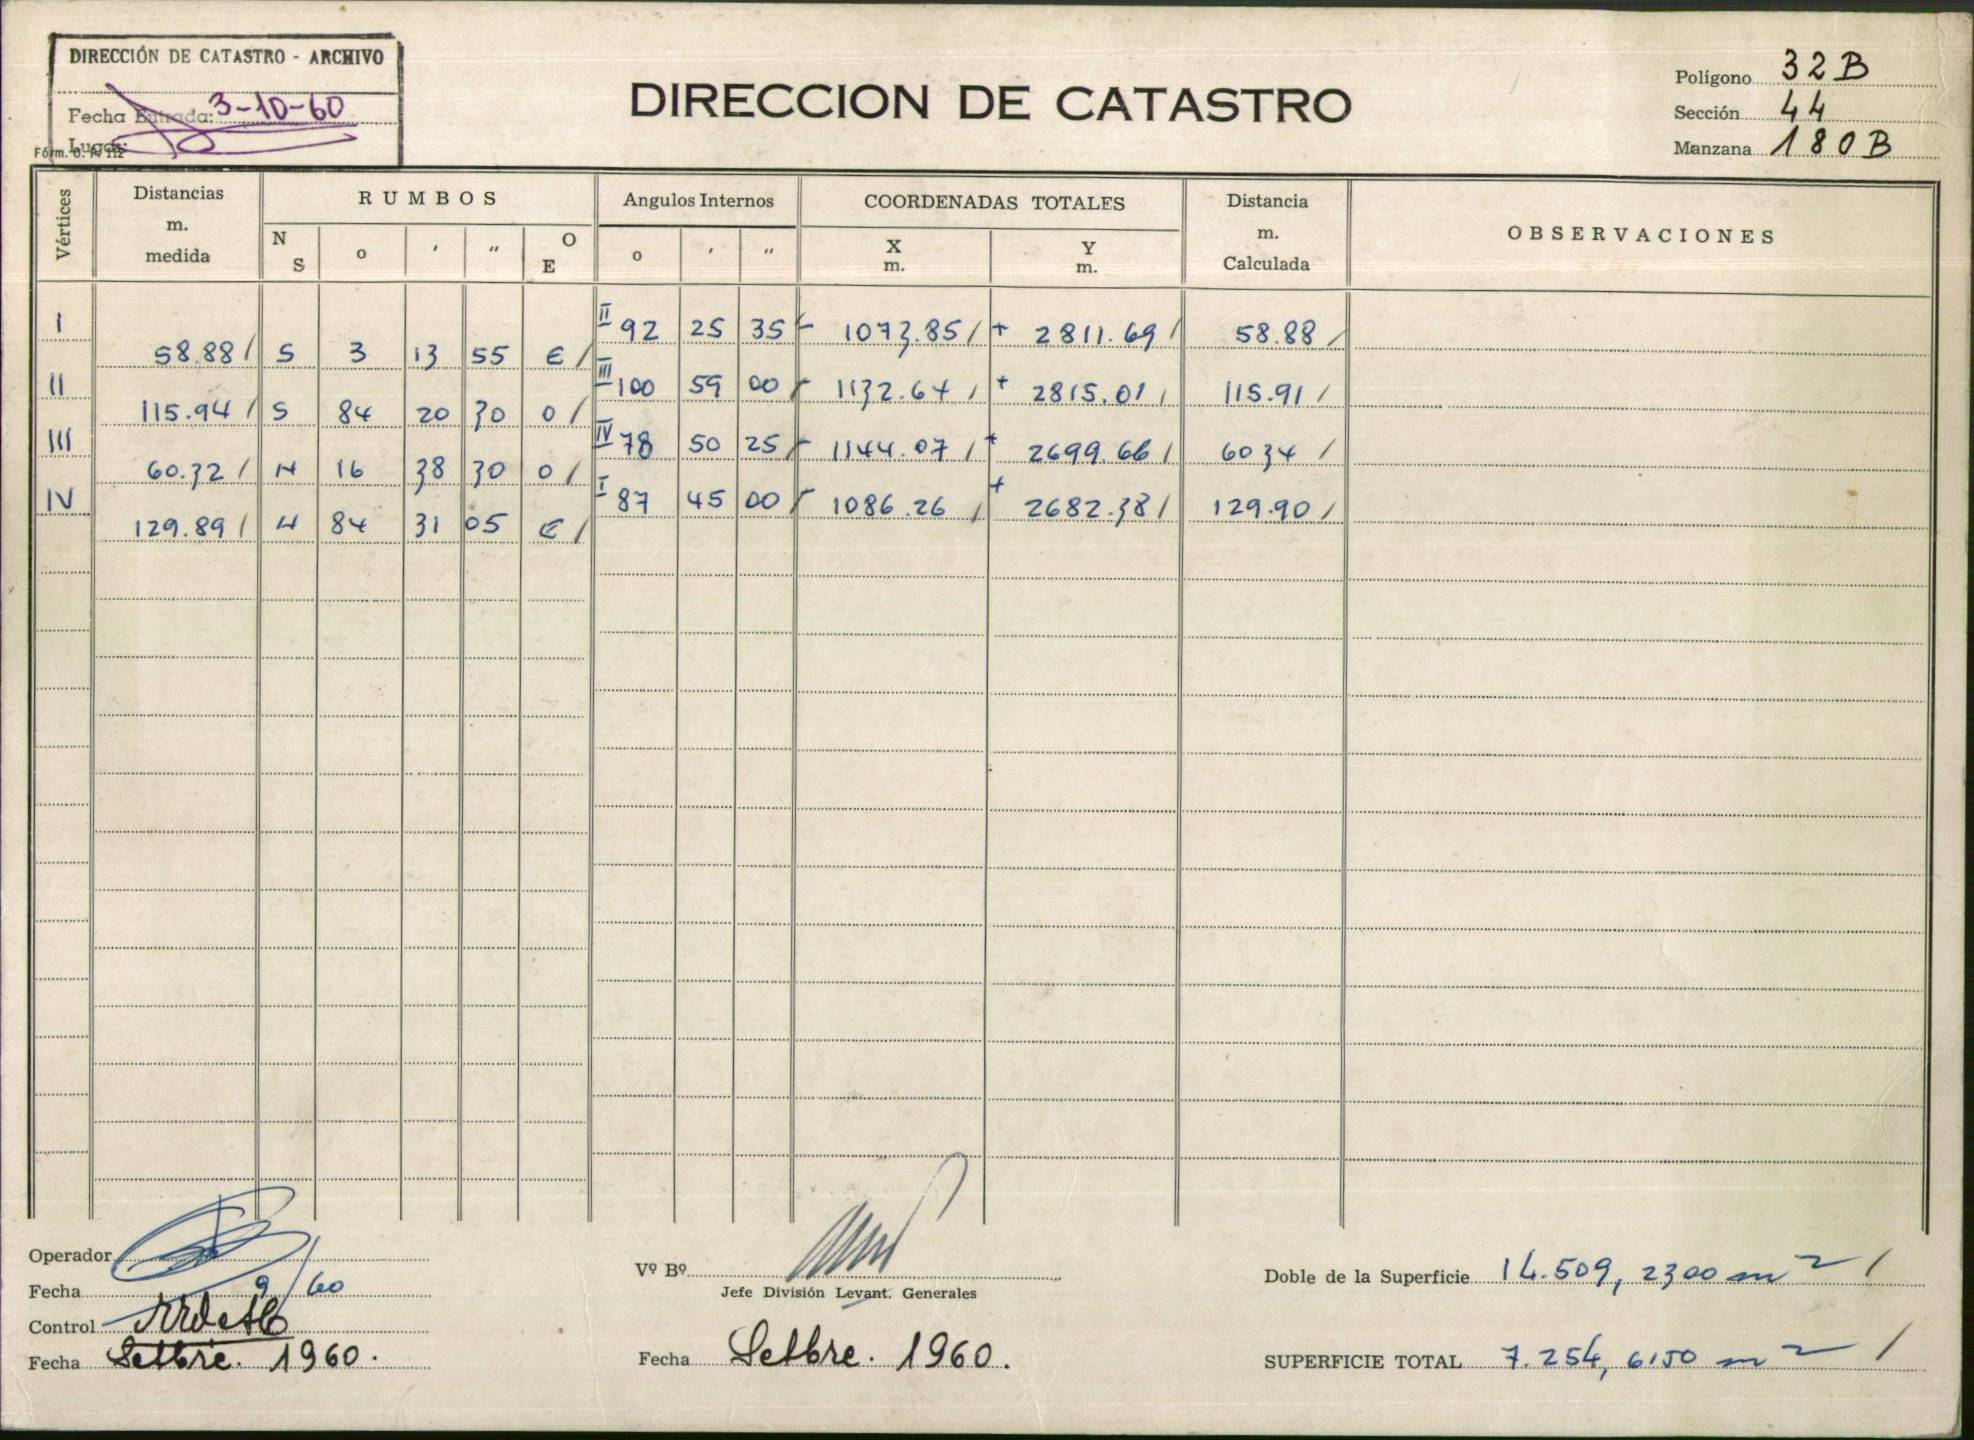 DIRECCIÓN DE CATASTRO - ARCHIVO
Fecha Entrada: 3-10-60
Lugar:
Fórm. 112
DIRECCION DE CATASTRO
Polígono 32 B
Sección 44
Manzana 180 B
Vértices Distancias m. medida RUMBOS Angulos Internos COORDENADAS TOTALES Distancia m. Calculada OBSERVACIONES
N S o ' " O E o ' " X m. Y m.
I II 92 25 35 - 1073.85 / + 2811.69 / 58.88 /
58.88 / S 3 13 55 E /
II III 100 59 00 - 1132.64 / + 2815.01 / 115.91 /
115.94 / S 84 20 30 O /
III IV 78 50 25 - 1144.07 / + 2699.66 / 60 34 /
60.32 / N 16 38 30 O /
IV I 87 45 00 - 1086.26 / + 2682.38 / 129.90 /
129.89 / N 84 31 05 E /
Operador
Fecha 9/60
Control
Fecha Setbre. 1960.
Vº Bº
Jefe División Levant. Generales
Fecha Setbre. 1960.
Doble de la Superficie 14.509, 2300 m 2 /
SUPERFICIE TOTAL 7.254, 6150 m 2 /